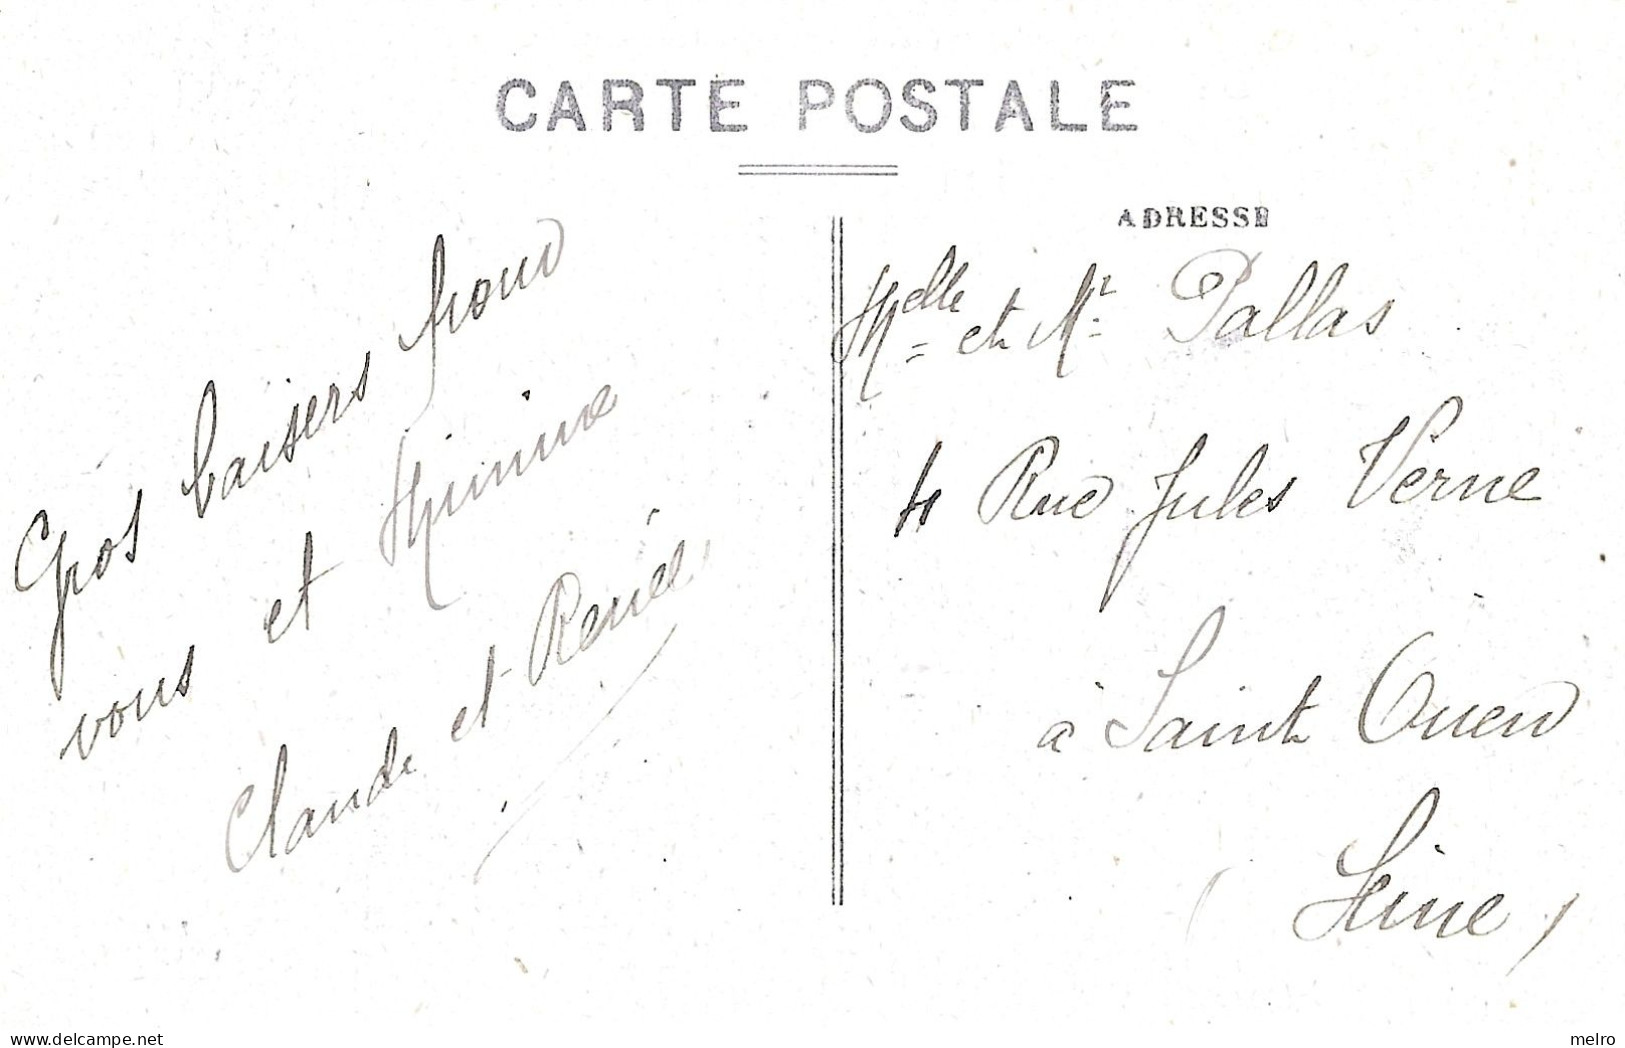 CARTE POSTALE
Gros baisers pour
vous et Mimine
Claude et Renée
ADRESSE
Melle et Mr Pallas
4 Rue Jules Verne
à Saint Ouen
(Seine)
melro